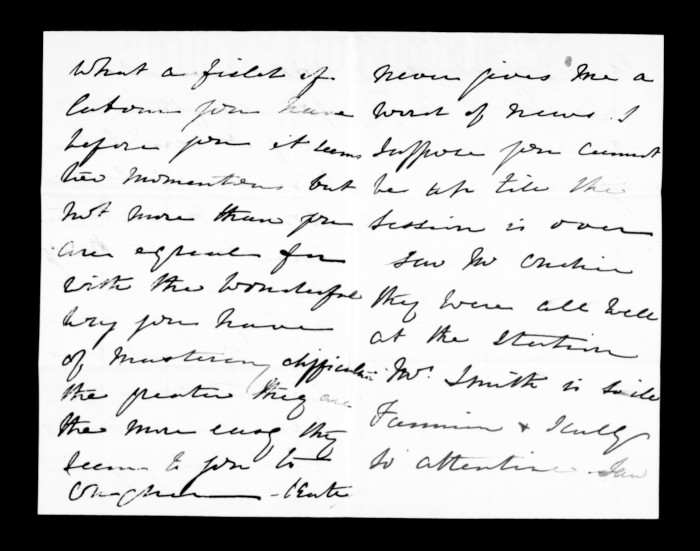 What a field of
labour you have
before you it seems
too momentous but
not more than you
are equal for
with the wonderful
way you have
of mastering difficulties
the greater they are
the more easy they
seem to you to
conquer - Kate
never gives me a
word of news. I
suppose you cannot
be up till the
session is over
saw Mr
they were all well
at the Station
Mr. Smith is
&
so attentive. Saw